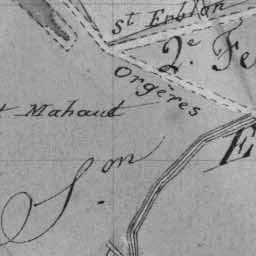 St Erblon
2.e Fe
Orgères
t Mahaut
S.m
E